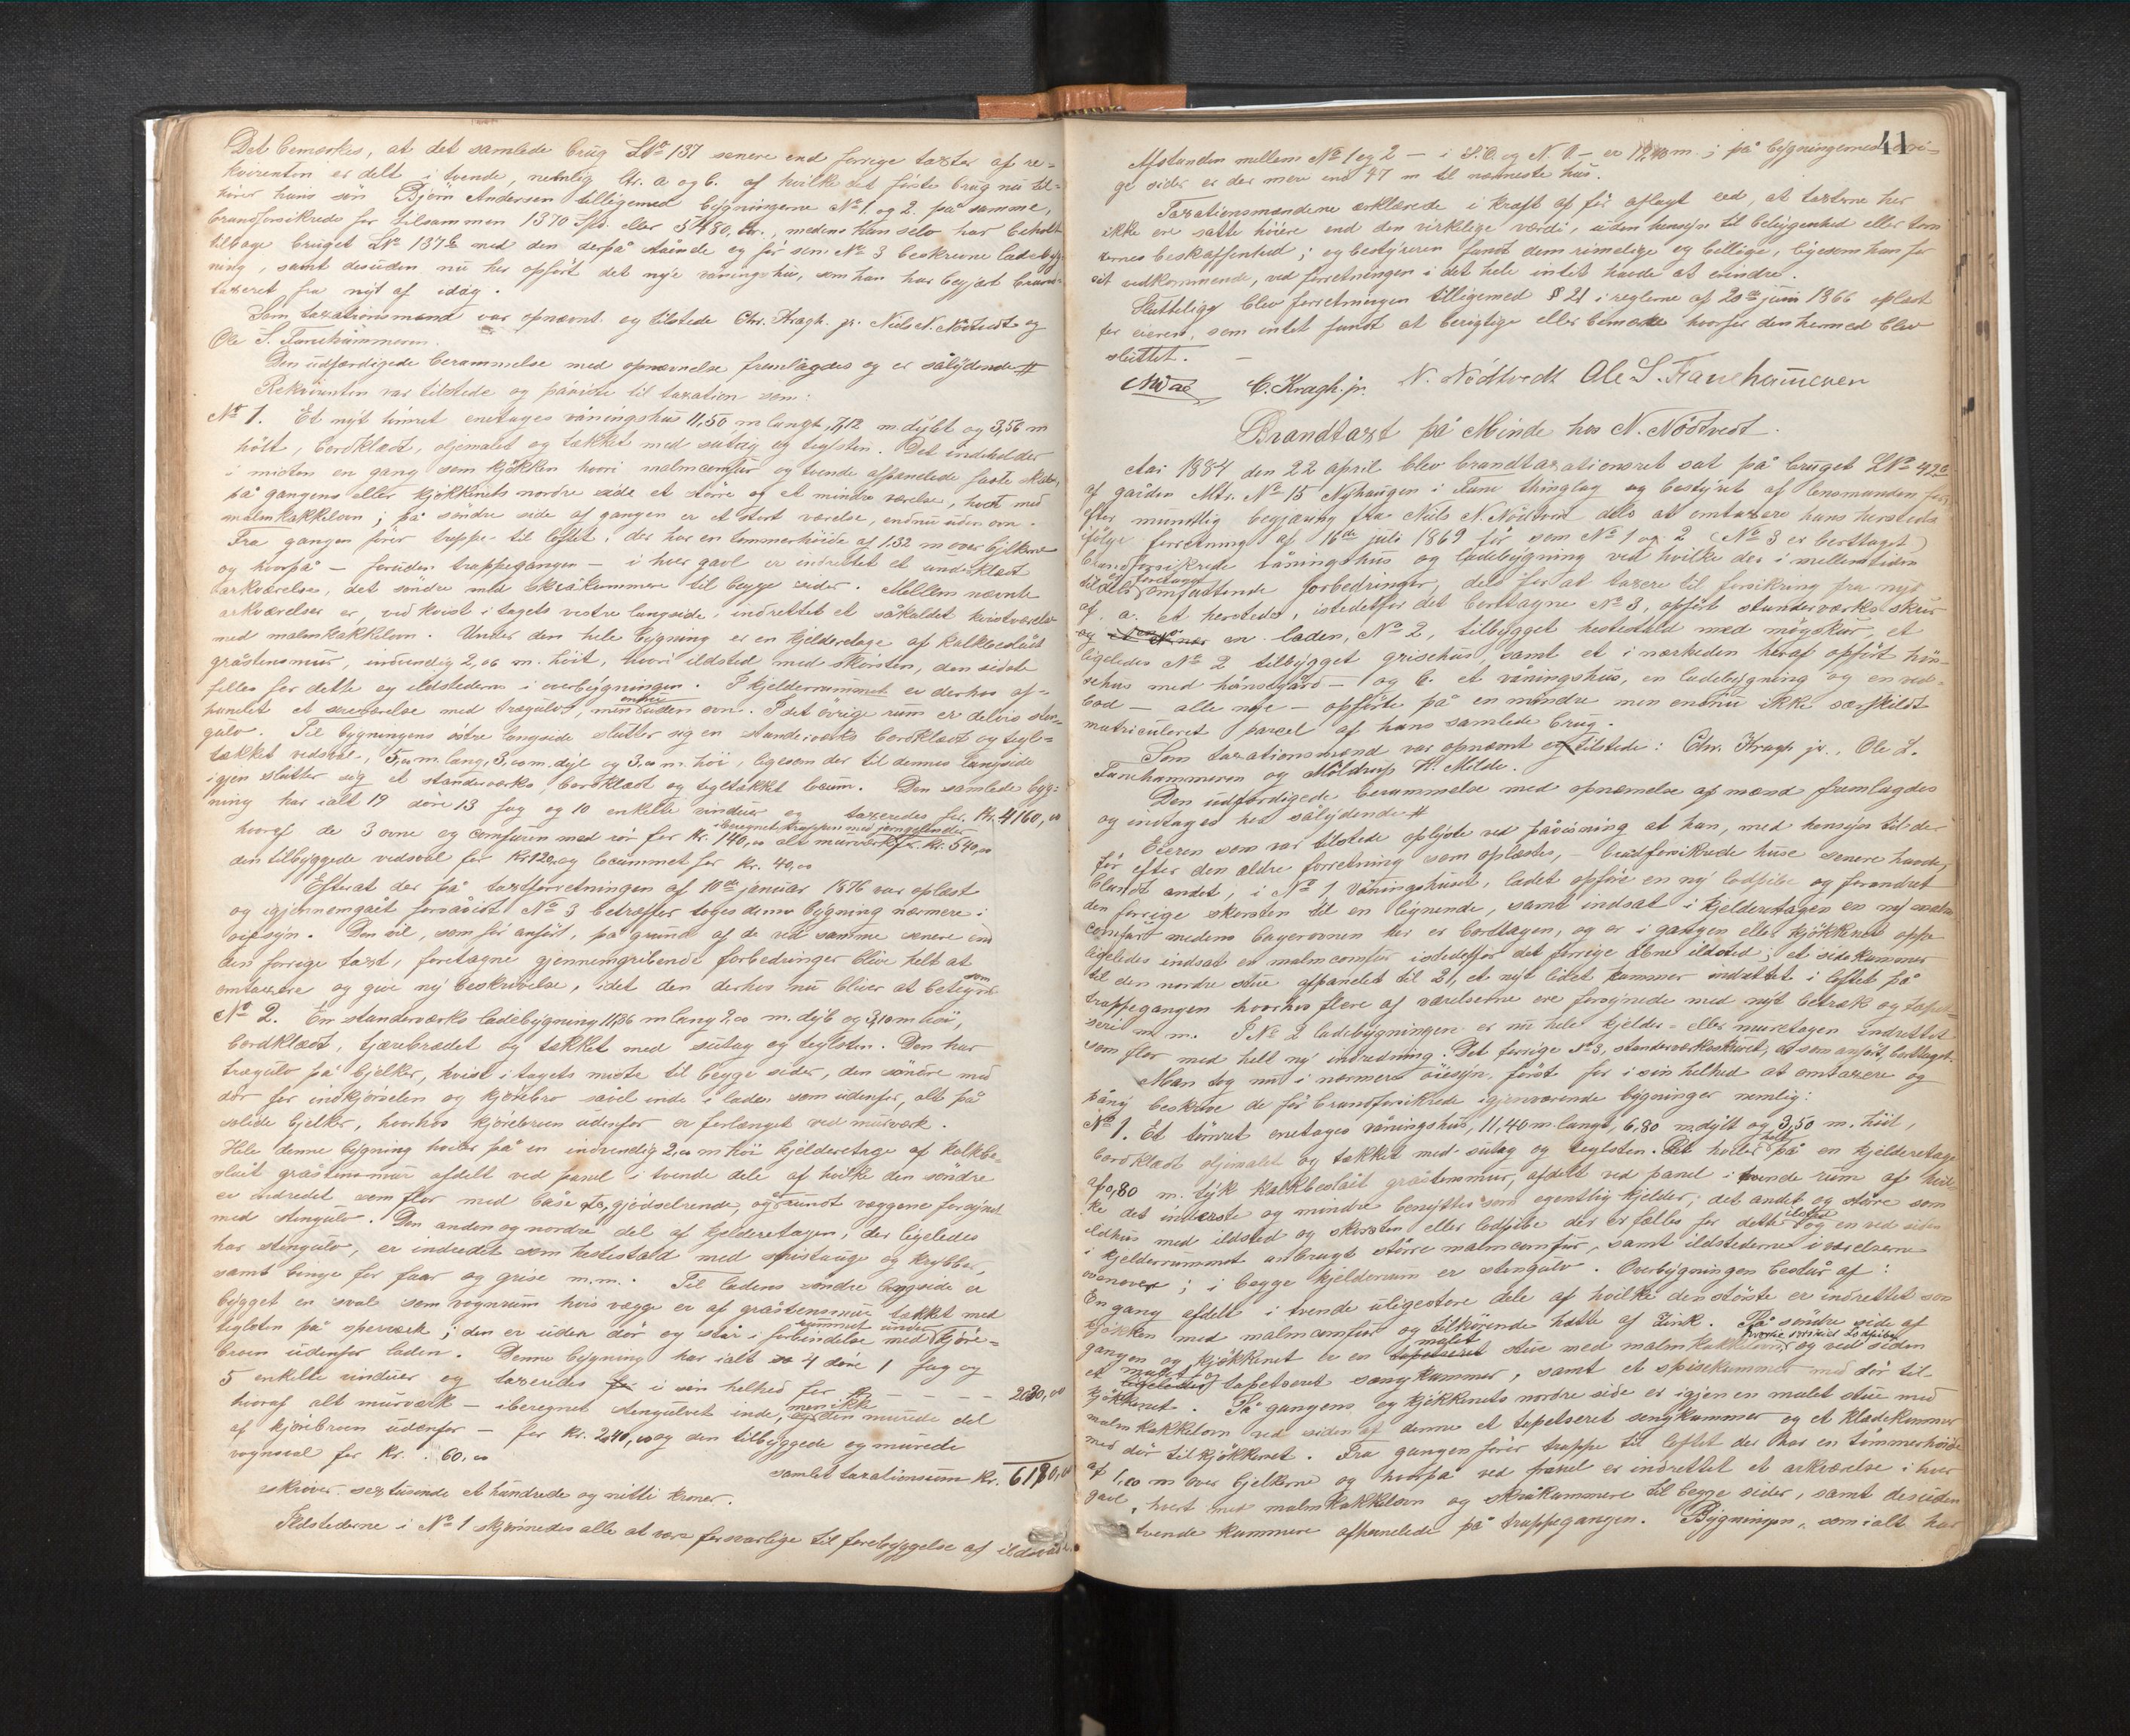 Det bemærkes, at det samlede brug LNo 137 senere end forrige taxter af re-
kvirenten er delt i tvende, nemlig litr. a og b. af hvilke det første brug nu til-
hører hans søn Bjørn Andersen tilligemed bygningerne No 1. og 2. på samme,
brandforsikrede for tilsammen 1370 Spd. eller 5480, kr., medens han selv har beholdt
tilbage bruget LNo 137b med den derpå stående og før som No 3 beskrevne ladebyg-
ning, samt desuden nu her opført det nye våningshus, som han har begjært brand-
taxeret fra nyt af idag.
Som taxationsmænd var opnævnt og tilstede Chr. Kragh jr. Niels N. Nødtvedt og
Ole S. Fanehammeren.
Den udfærdigede berammelse med opnævnelse fremlagdes og er sålydende #
Rekvirenten var tilstede og påviste til taxation som:
No 1. Et nyt tømret enetages våningshus 11,50 m langt, 7,12 m. dybt og 3,56 m
høit, bordklædt, oljemalet og tækket med sutag og teglsten. Det indeholder
i midten en gang som kjøkken hvori malmcomfur og tvende afpanelede faste skabe,
på gangens eller kjøkkenets nordre side et større og et mindre værelse, hvert med
malmkakkelovn; på søndre side af gangen er et stort værelse, endnu uden ovn.
Fra gangen fører trappe til loftet, der har en tømmerhøide af 1.32 m over bjelkerne
og hvorpå – foruden trappegangen – i hver gavl er indrettet et underklædt
arkværelse, det søndre med skråkammere til begge sider. Mellem nævnte
arkværelser er, ved kvist i tagets vestre langside, indrettet et såkaldet kvistværelse
med malmkakkelovn. Under den hele bygning er en kjelderetage af kalkbeslåt
gråstensmur, indvendig 2,06 m. høit, hvori ildsted med skorsten, den sidste
fælles for dette og ildstederne i overbygningen. I kjelderrummet er derhos af-
panelet et værelse med trægulv, men endnu uden ovn. I det øvrige rum er delvis sten-
gulv. Til bygningens østre langside slutter sig en standerværks bordklædt og tegl-
tækket vedsval, 5,00 m. lang, 3,00 m. dyb og 3,00 m. høi, ligesom der til dennes langside
igjen slutter sig et standerværks, bordklædt og tegltækket locum. Den samlede byg-
ning har ialt 19 døre 13 fag og 10 enkelte vinduer og taxeredes for kr. 4160,00
hvoraf de 3 ovne og comfuren med rør for kr. 140,00 alt murværk iberegnet trappen med jerngelænder for kr. 540,00
den tilbyggede vedsval for kr. 120,00 og locummet for kr. 40,00
Efterat der på taxtforretningen af 10de januar 1876 var oplæst
og igjennemgået forsåvidt No 3 betræffer toges denne bygning nærmere i
øiesyn. Den vil, som før anført, på grund af de ved samme senere end
den forrige taxt, foretagne gjennemgribende forbedringer blive helt at
omtaxere og give ny beskrivelse, idet den derhos nu bliver at betegne som
No 2. En standerværks ladebygning 11,86 m lang 9,00 m. dyb og 3,10 m høi,
bordklædt, tjærebrædet og tækket med sutag og teglsten. Den har
trægulv på bjelker, kvist i tagets midte til begge sider, den søndre med
dør for indkjørselen og kjørebro såvel inde i laden som udenfor, alt på
solide bjelker, hvorhos kjørebroen udenfor er forlænget ved murværk.
Hele denne bygning hviler på en indvendig 2,00 m høi kjelderetage af kalkbe-
slåt gråstensmur afdelt ved panel i tvende dele af hvilke den søndre
er indredet som flor med båse etc, gjødselrende, og rundt væggene forsynet
med stengulv. Den anden og nordre del af kjelderetagen, der ligeledes
har stengulv, er indredet som hestestald med spiltauge og krybber,
samt binge for faar og grise m.m. Til ladens søndre langside er
bygget en sval som vognrum hvis vægge er af gråstensmur tækket med
teglsten på sperværk; den er uden dør og står i forbindelse med rummet under kjøre-
broen udenfor laden. Denne bygning har ialt 4 døre 1 fag og
5 enkelte vinduer og taxeredes i sin helhed for kr – – – – 2030,00
hvoraf alt murværk – iberegnet stengulvet inde, men ikke den murede del
af kjørebroen udenfor – for kr. 240,00 og den tilbyggede og murede
vognsval for kr. 60,00
samlet taxationssum kr. 6190,00
skriver sextusende et hundrede og nitti kroner.
Ildstederne i No 1 skjønnedes alle at være forsvarlige til forebyggelse af ildsvåde.
41
Afstanden mellem No 1 og 2 – i S.O. og N.V. – er 12,40 m; på bygningernes øvri-
ge sider er der mere end 47 m til nærmeste hus.
Taxationsmændene erklærede i kraft af før aflagt eed, at taxterne her
ikke ere satte høiere end den virkelige værdi, uden hensyn til beliggenhed eller tom-
ternes beskaffenhed; og bestyreren fandt dem rimelige og billige, ligesom han for
sit vedkommende, ved forretningen i det hele intet havde at erindre.
Sluttelig blev forretningen tilligemed § 21 i reglerne af 20de juni 1866 oplæst
for eieren, som intet fandt at berigtige eller bemærke hvorfor den hermed blev
sluttet. –
C. Kragh. jr. N. Nødtvedt Ole S. Fanehammeren
Brandtaxt på Minde hos N. Nødtvedt.
Aar 1884 den 22 april blev brandtaxationsret sat på bruget LNo 42c
af gården Mtr. No 15 Nyhaugen i Fane thinglag og bestyret af lensmanden
efter mundtlig begjæring fra Niels N. Nødtvedt dels at omtaxere hans hersteds
ifølge forretning af 16de juli 1869 før som No 1 og 2 (No 3 er borttaget)
brandforsikrede våningshus og ladebygning ved hvilke der i mellemtiden
er foretaget tildels omfattende forbedringer, dels for at taxere til forsikring fra nyt
af a. et hersteds, istedetfor det borttagne No 3, opført standerværks skur
og en laden, No 2, tilbygget hestestald med møgskur, et
ligeledes No 2 tilbygget grisehus, samt et i nærheden heraf opført høn-
sehus med hønsegård – og b. et våningshus, en ladebygning og en ved-
bod – alle nye – opførte på en mindre men endnu ikke særskildt
matriculeret parcel af hans samlede brug.
Som taxationsmænd var opnævnt og tilstede: Chr. Kragh jr., Ole S.
Fanehammeren og Møldrup H. Milde.
Den udfærdigede berammelse med opnævnelse af mænd fremlagdes
og indtages her sålydende #
Eieren som var tilstede oplyste ved påvisning at han, med hensyn til de
før efter den ældre forretning som oplæstes, – brandforsikrede huse senere havde,
blandt andet, i No 1 Våningshuset, ladet opføre en ny lodpibe og forandret
den forrige skorsten til en lignende, samt indsat i kjelderetagen en ny malm-
comfur medens bagerovnen her er borttagen, og er i gangen eller kjøkkenet oppe
ligeledes indsat en malmcomfur istedetfor det forrige åbne ildsted; et sidekammer
til den nordre stue afpanelet til 2, et nyt lidet kammer indrettet i loftet på
trappegangen hvorhos flere af værelserne ere forsynede med nyt betræk og tapet-
seri m. m. I No 2 ladebygningen er nu hele kjelder- eller muretagen indrettet
som flor med helt ny indredning. Det forrige No 3, standerværksskuret, er som anført, borttaget.
Man tog nu i nærmere øiesyn, først for i sin helhed at omtaxere og
påny beskrive de før brandforsikrede igjenværende bygninger nemlig:
No 1. Et tømret enetages våningshus, 11,40 m. langt, 6,80 m. dybt og 3,50 m. høit,
bordklædt oljemalet og tækket med sutag og teglsten. Det hviler helt på en kjelderetage
af 0,80 m. tyk kalkbeslåt gråstensmur, afdelt ved panel i tvende rum af hvil-
ke det inderste og mindre benyttes som egentlig kjelder; det andet og større som
ildhus med ildsted og skorsten eller lodpibe der er fælles for dette ildsted og en ved siden
i kjelderrummet anbragt større malmcomfur, samt ildstederne i værelserne
ovenover; i begge kjelderrum er stengulv. Overbygningen består af:
En gang afdelt i tvende uligestore dele af hvilke den største er indrettet som
kjøkken med malmcomfur og tilhørende hætte af Zink. På søndre side af
gangen og kjøkkenet er en malet stue med malmkakkelovn og ved siden
et malet og tapetseret sengkammer, samt et spisekammer med dør til
kjøkkenet. På gangens og kjøkkenets nordre side er igjen en malet stue med
malmkakkelovn ved siden af denne et tapetseret sengkammer og et klædekammer
med dør til kjøkkenet. Fra gangen fører trappe til loftet der har en tømmerhøide
af 1,00 m over bjelkerne og hvorpå ved panel er indrettet et arkværelse i hver
gavl, hvert med malmkakkelovn og skråkammere til begge sider, samt desuden
tvende kammere afpanelede på trappegangen. Bygningen, som ialt har